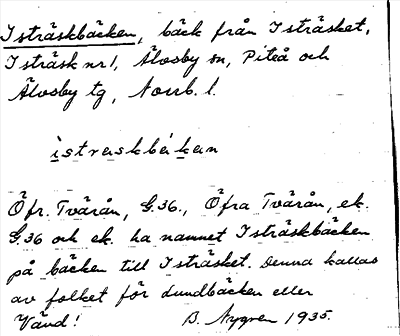 Isträskbäcken, bäck från Isträsket,
Isträsk nr 1, Älvsby sn, Piteå och
Älvsby tg, Norrb. l.
istrɛskbɛ́kɛn
Öfr. Tvärån, G.36., Öfra Tvärån, ek.
G.36 och ek. ha namnet Isträskbäcken
på bäcken till Isträsket. Denna kallas
av folket för Lundbäcken eller
Vänd! B. Nygren 1935.